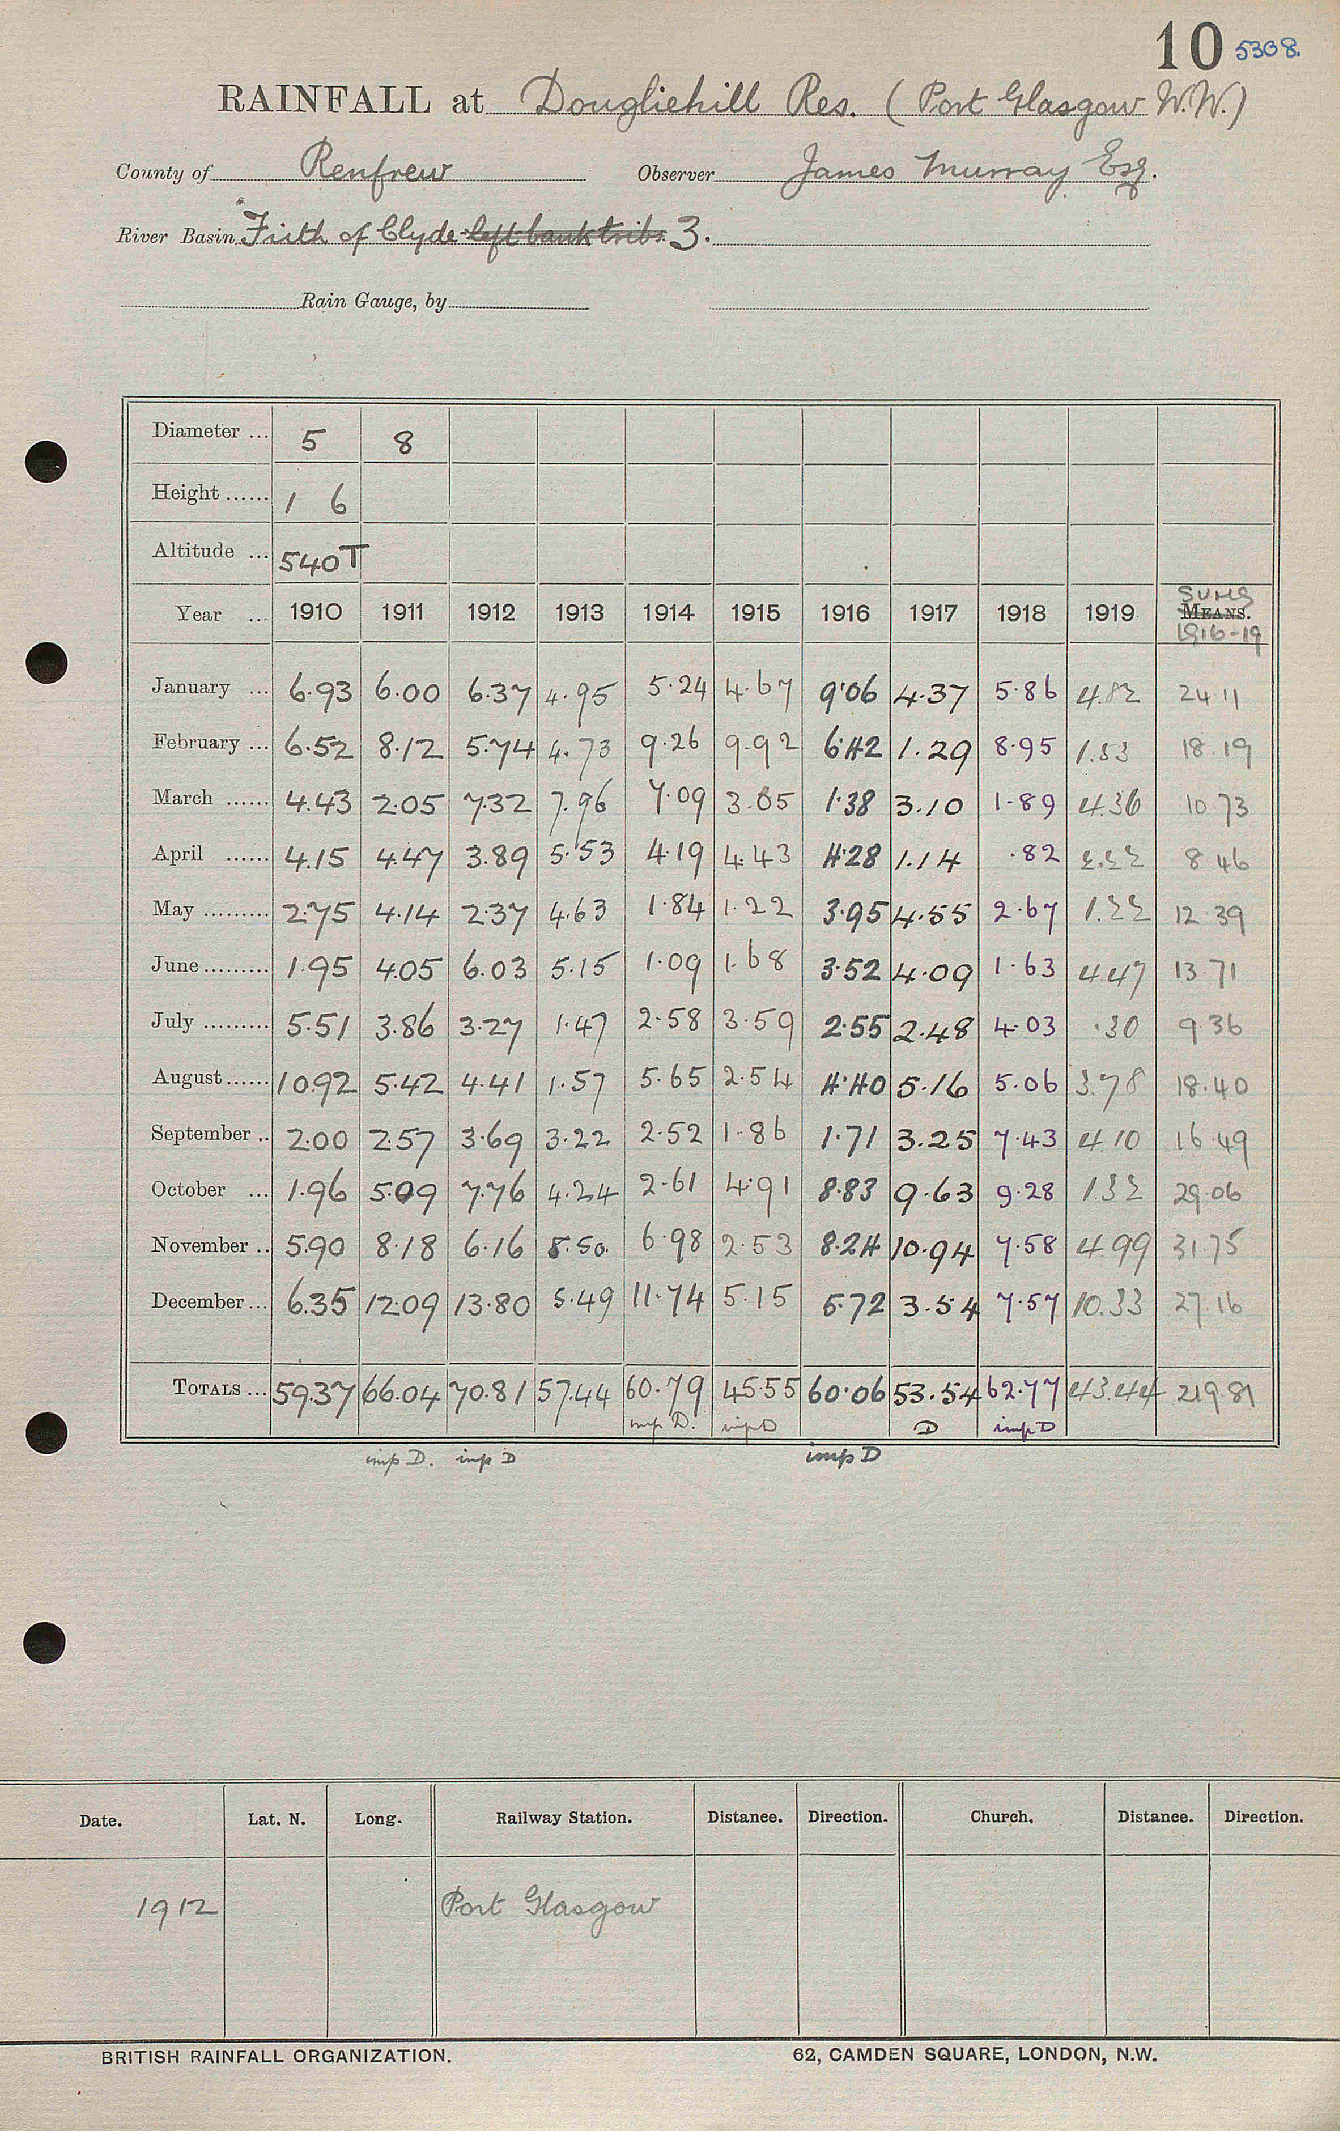 10 5308.
RAINFALL at Dougliehill Res. (Port Glasgow W.W.)
County of Renfrew Observer James Murray Esq.
River Basin Firth of Clyde left bank tribs. 3.
Rain Gauge, by
Diameter ... 5 8
Height ...... 1 6
Altitude ... 540T
SUMS
Year ... 1910 1911 1912 1913 1914 1915 1916 1917 1918 1919 MEANS.
1916-19
January ... 6.93 6.00 6.37 4.95 5.24 4.67 9.06 4.37 5.86 4.82 24 11
February ... 6.52 8.12 5.74 4.73 9.26 9.92 6.42 1.29 8.95 1.53 18.19
March ...... 4.43 2.05 7.32 7.96 7.09 3.05 1.38 3.10 1.89 4.36 10 73
April ...... 4.15 4.47 3.89 5.53 4.19 4.43 4.28 1.14 .82 2.22 8 46
May ......... 2.75 4.14 2.37 4.63 1.84 1.22 3.95 4.55 2.67 1.22 12 39
June ......... 1.95 4.05 6.03 5.15 1.09 1.68 3.52 4.09 1.63 4.47 13 71
July ......... 5.51 3.86 3.27 1.47 2.58 3.59 2.55 2.48 4.03 .30 9 36
August ...... 10.92 5.42 4.41 1.57 5.65 2.54 4.40 5.16 5.06 3.78 18.40
September .. 2.00 2.57 3.69 3.22 2.52 1.86 1.71 3.25 7.43 4.10 16 49
October ... 1.96 5.09 7.76 4.24 2.61 4.91 8.83 9.63 9.28 1.32 29.06
November .. 5.90 8.18 6.16 8.50. 6.98 2.53 8.24 10.94 7.58 4.99 31.75
December ... 6.35 12.09 13.80 5.49 11.74 5.15 5.72 3.54 7.57 10.33 27.16
TOTALS ... 59.37 66.04 70.81 57.44 60.79 45.55 60.06 53.54 62.77 43.44 219.81
imp D. imp D D imp D
imp D. imp D imp D
Date. Lat. N. Long. Railway Station. Distance. Direction. Church. Distance. Direction.
1912 Port Glasgow
BRITISH RAINFALL ORGANIZATION. 62, CAMDEN SQUARE, LONDON, N.W.